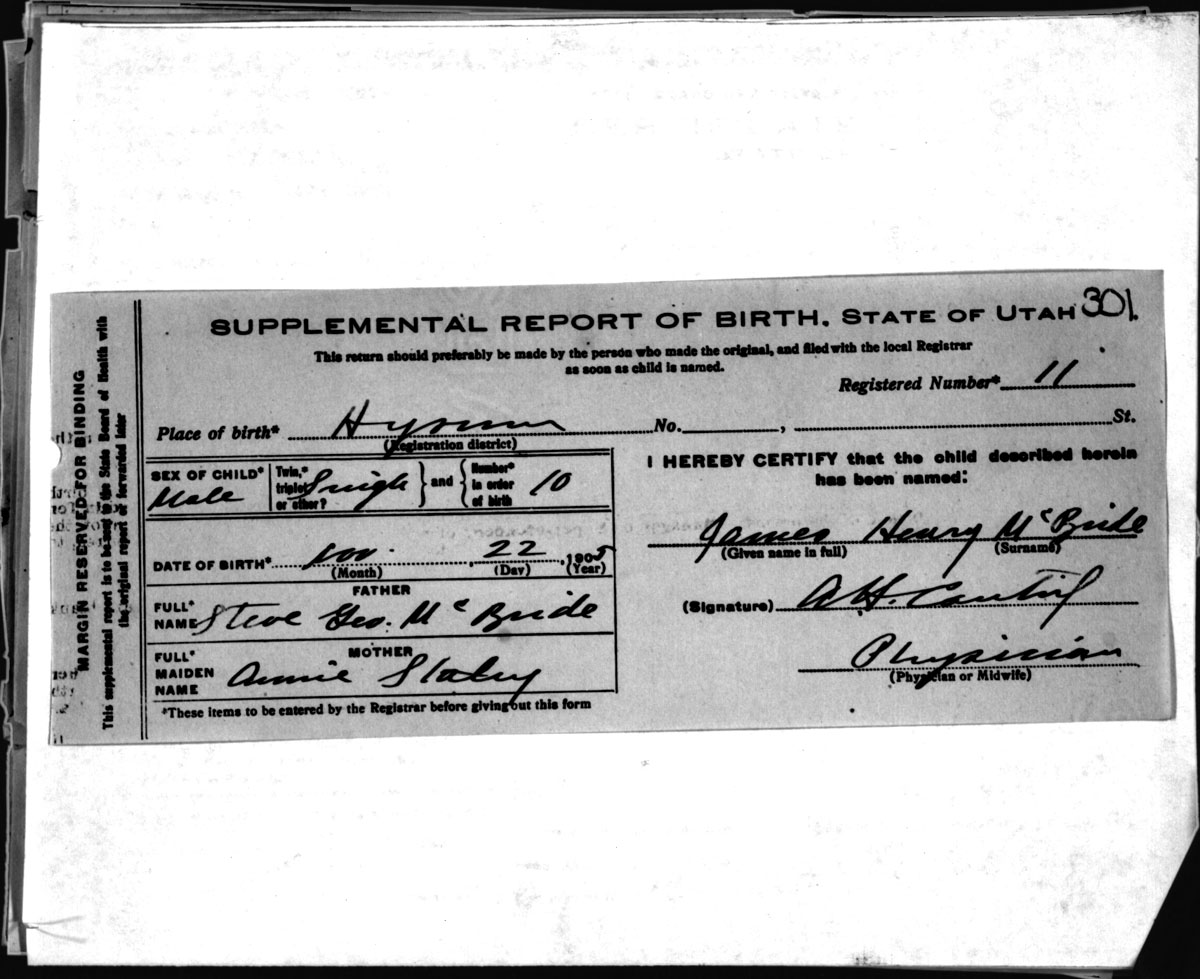 SUPPLEMENTAL REPORT OF BIRTH. STATE OF UTAH 301.
This return should preferably be made by the person who made the original, and filed with the local Registrar
as soon as child is named.
Registered Number* 11
Place of birth* Hyrum No. , St.
(Registration district)
SEX OF CHILD* Male
Twin,* triplet or other? Single
and
Number* in order of birth 10
DATE OF BIRTH* 22, 1905
(Month) (Day) (Year)
FATHER
FULL* NAME Steve Geo. McBride
MOTHER
FULL* MAIDEN NAME Annie
*These items to be entered by the Registrar before giving out this form
I HEREBY CERTIFY that the child described herein
has been named:
James Henry McBride
(Given name in full) (Surname)
(Signature) A.H.
Physician
(Physician or Midwife)
MARGIN RESERVED FOR BINDING
This supplemental report is to be sent to the State Board of Health with
the original report or forwarded later